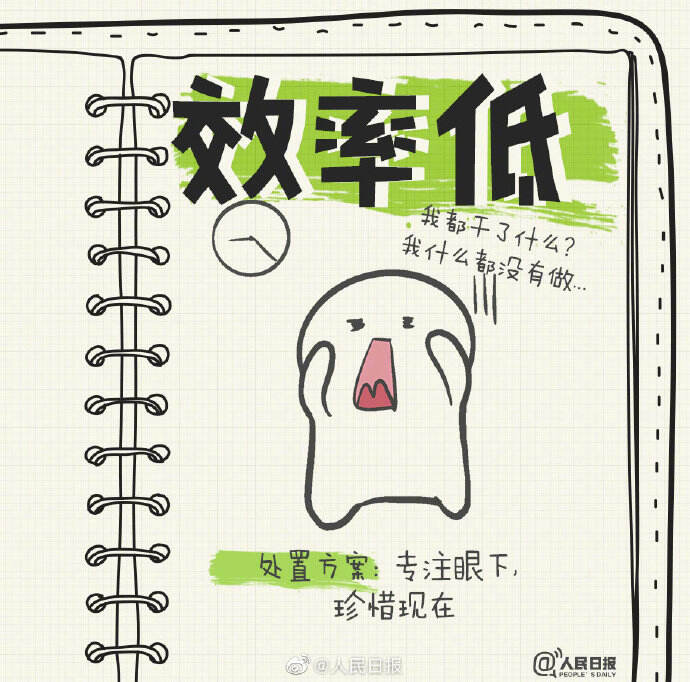 效率低
我都干了什么？
我什么都没有做...
处置方案：专注眼下，
珍惜现在
@人民日报
@人民日报
PEOPLE'S DAILY